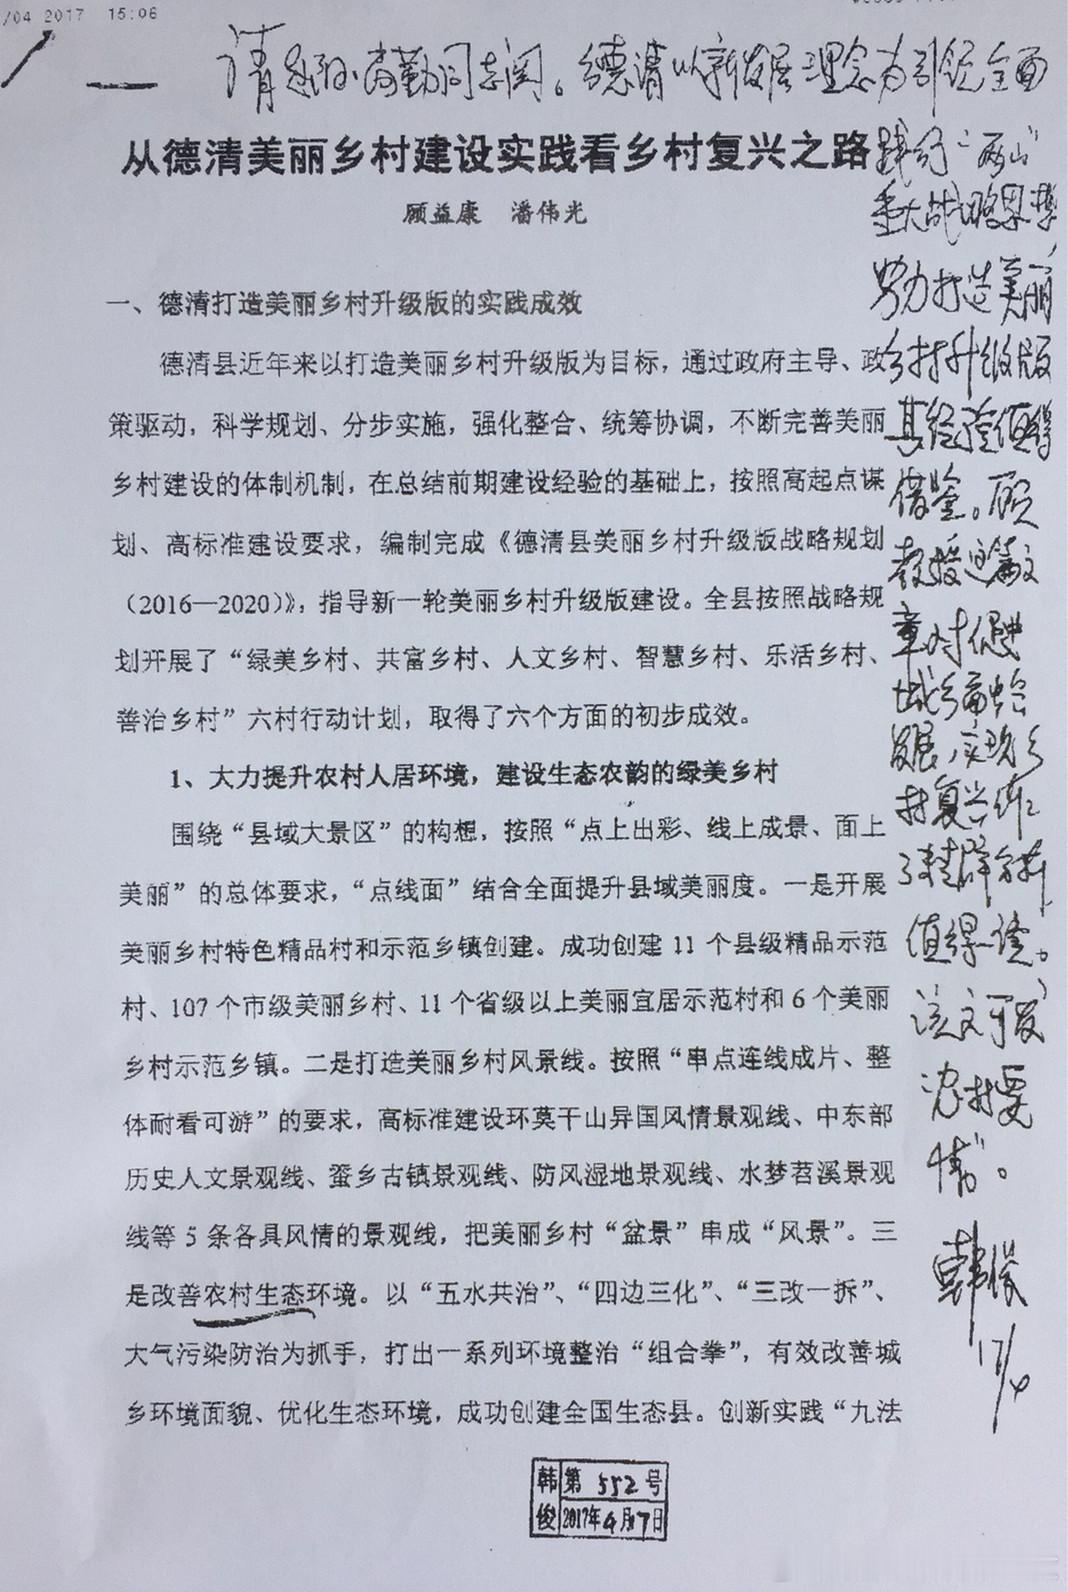 /04 2017 15:06
请赵阳、尚勤同志阅。德清以新发展理念为引领全面
践行“两山”
重大战略思想
努力打造美丽
乡村升级版
其经验值得
借鉴。顾
教授这篇文
章对促进
城乡融合
发展，实现乡
村复兴作
了 分析
值得一读。
该文可发
“农村要
情”。
韩俊
17/4
从德清美丽乡村建设实践看乡村复兴之路
顾益康 潘伟光
一、德清打造美丽乡村升级版的实践成效
德清县近年来以打造美丽乡村升级版为目标，通过政府主导、政
策驱动，科学规划、分步实施，强化整合、统筹协调，不断完善美丽
乡村建设的体制机制，在总结前期建设经验的基础上，按照高起点谋
划、高标准建设要求，编制完成《德清县美丽乡村升级版战略规划
（2016—2020）》，指导新一轮美丽乡村升级版建设。全县按照战略规
划开展了“绿美乡村、共富乡村、人文乡村、智慧乡村、乐活乡村、
善治乡村”六村行动计划，取得了六个方面的初步成效。
1、大力提升农村人居环境，建设生态农韵的绿美乡村
围绕“县域大景区”的构想，按照“点上出彩、线上成景、面上
美丽”的总体要求，“点线面”结合全面提升县域美丽度。一是开展
美丽乡村特色精品村和示范乡镇创建。成功创建 11 个县级精品示范
村、107 个市级美丽乡村、11 个省级以上美丽宜居示范村和 6 个美丽
乡村示范乡镇。二是打造美丽乡村风景线。按照“串点连线成片、整
体耐看可游”的要求，高标准建设环莫干山异国风情景观线、中东部
历史人文景观线、蚕乡古镇景观线、防风湿地景观线、水梦苕溪景观
线等 5 条各具风情的景观线，把美丽乡村“盆景”串成“风景”。三
是改善农村生态环境。以“五水共治”、“四边三化”、“三改一拆”、
大气污染防治为抓手，打出一系列环境整治“组合拳”，有效改善城
乡环境面貌、优化生态环境，成功创建全国生态县。创新实践“九法
韩俊
第 552 号
2017年4月17日